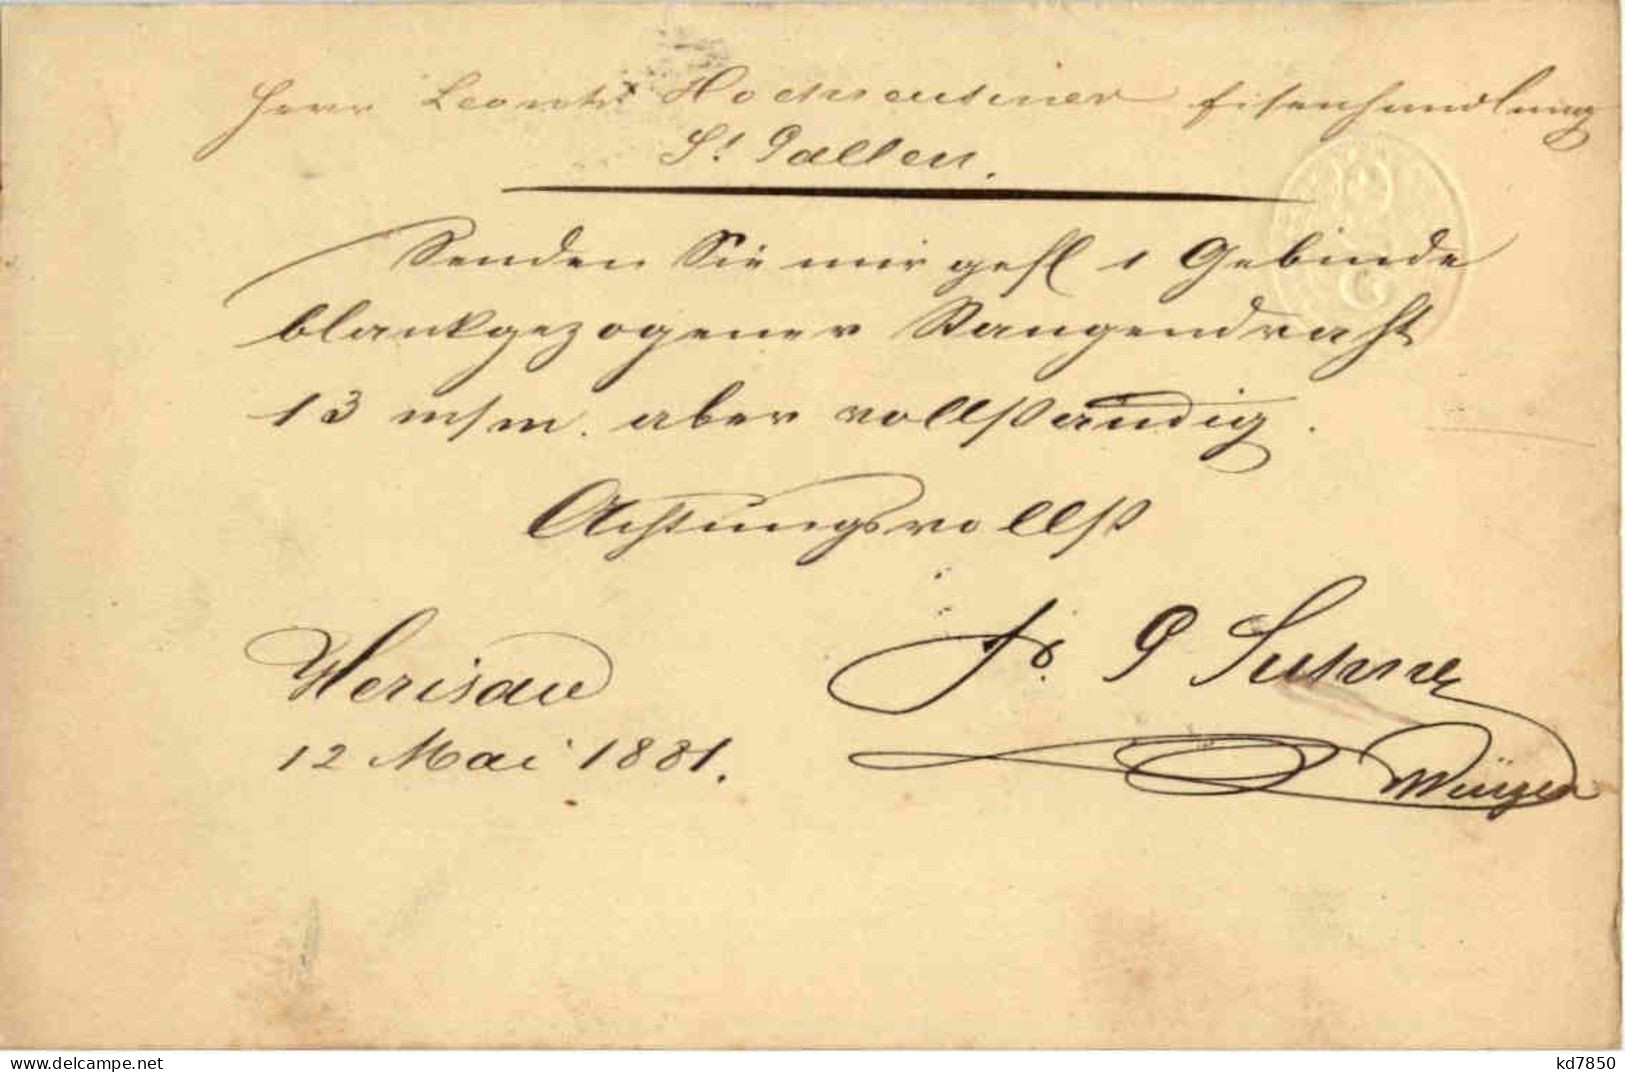 Herr Leonh. Hochreutiner Eisenhandlung
St Gallen.
Senden Sie mir gefl 1 Gebinde
blankgezogener Stangendraht
13 m/m. aber vollständig.
Achtungsvollst
Herisau
12 Mai 1881.
Js. G Suhner
Wwe & Co
kd7850
www.delcampe.net